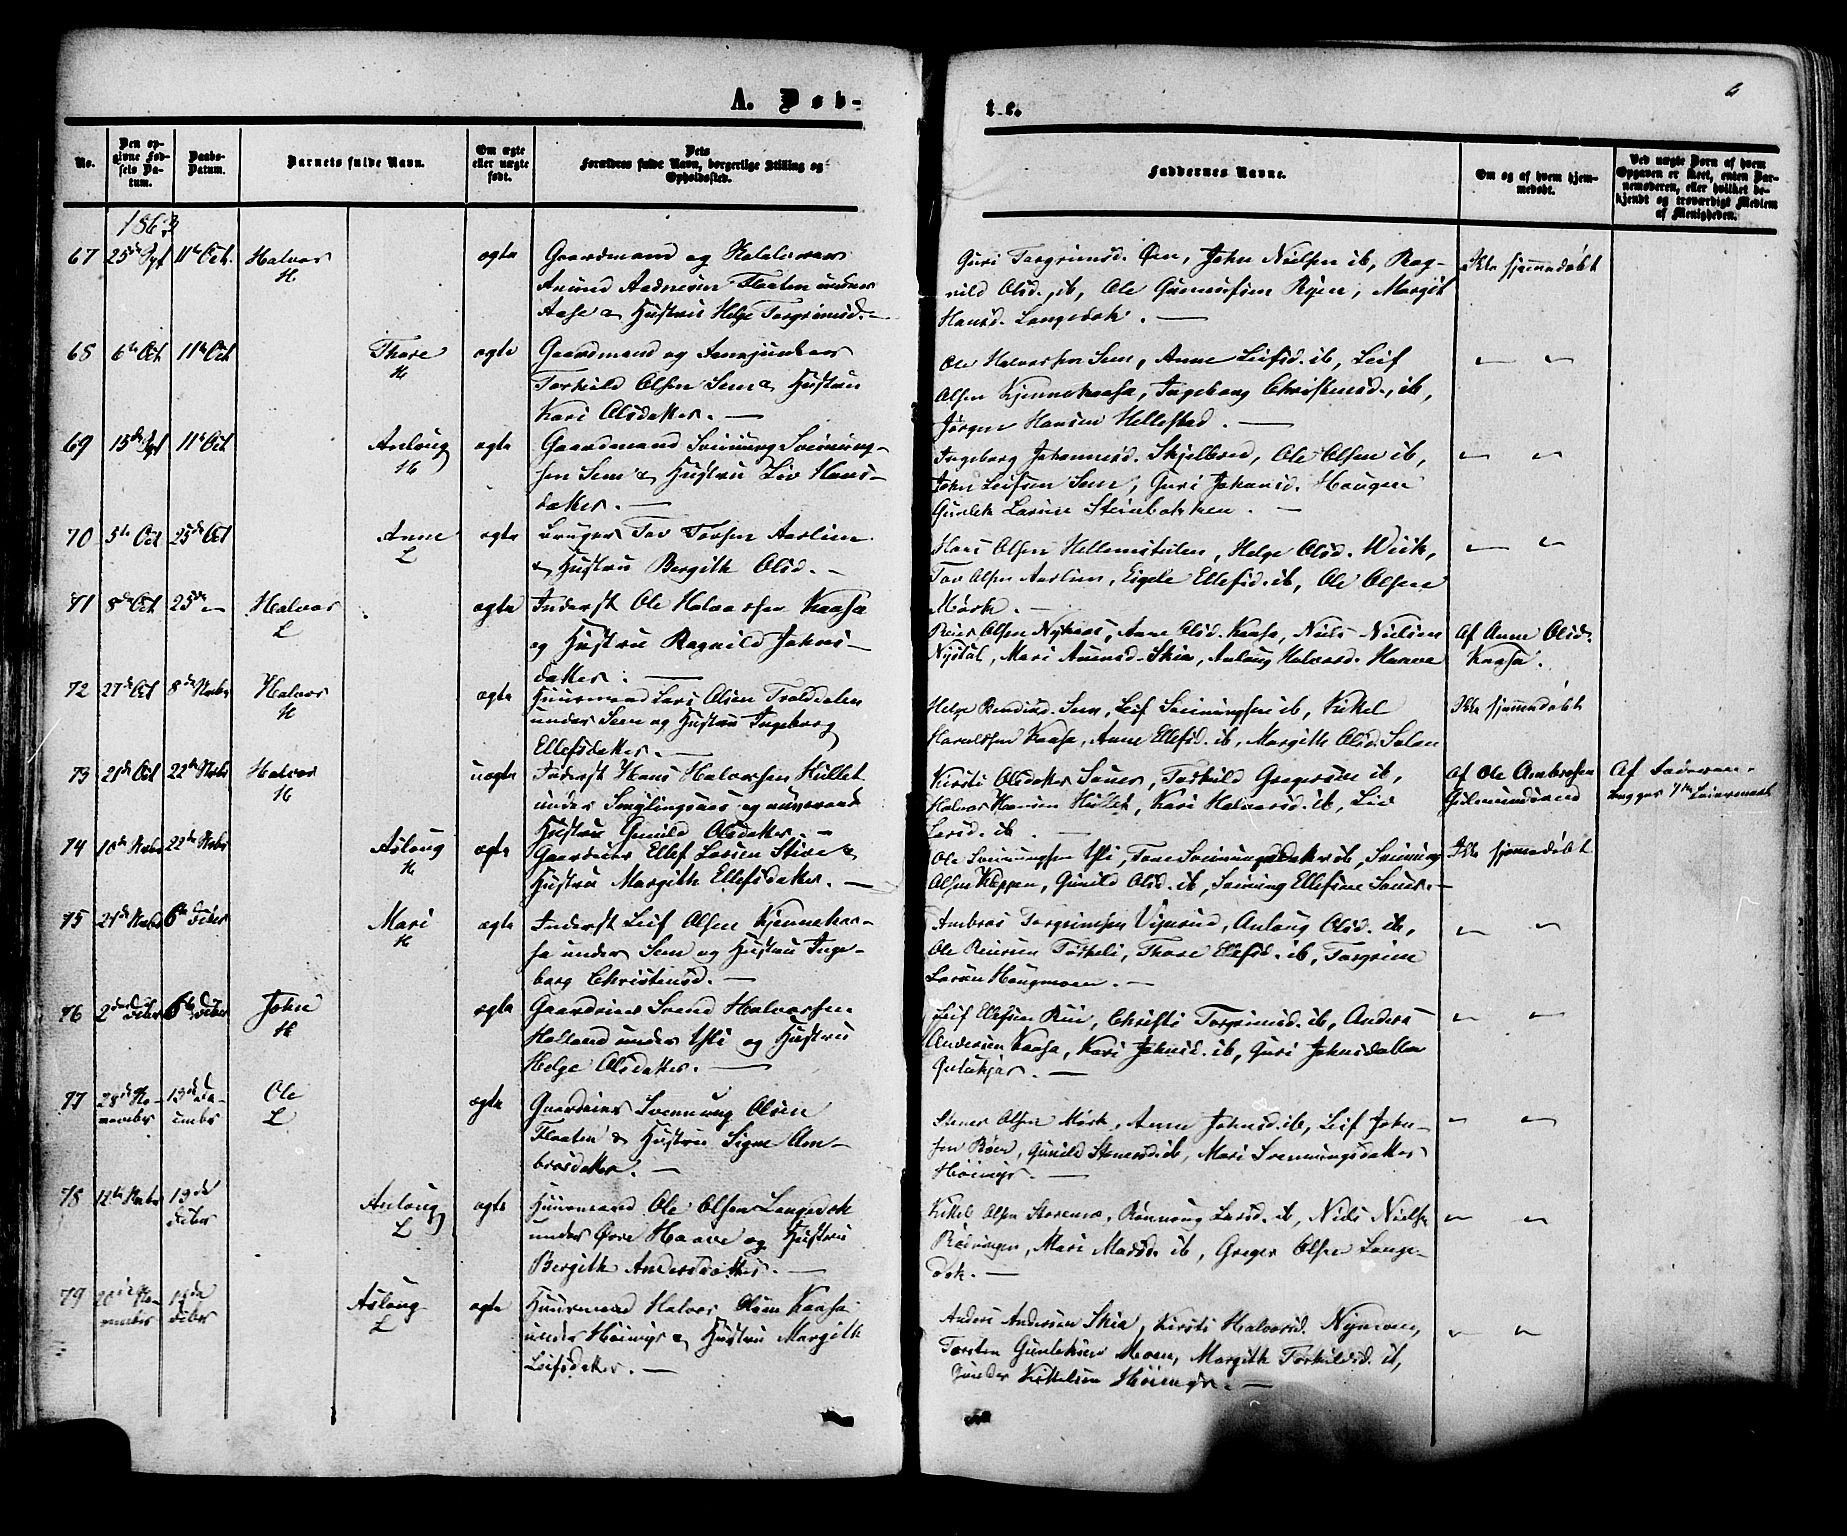 A. Døb-
te.
6
No.
Den op-
givne Fød-
sels Da-
tum.
Daabs-
Datum.
Barnets fulde Navn.
Om ægte
eller uægte
født.
Dets
Forældres fulde Navn, borgerlige Stilling og
Opholdssted.
Faddernes Navne.
Om og af hvem hjem-
medøbt.
Ved uægte Børn af hvem
Opgaven er skeet, enten Bar-
nemoderen, eller hvilket be-
kjendt og troværdigt Medlem
af Menigheden.
1863
67 25de Spt 11te Oct. Halvor ægte Gaardmand og
H Anund Aadnesen Flaaten under
Aase & Hustru Helge Torgrimsd. —
Guri Torgrimsd. Øen, John Nielsen ib, Rag-
nild Olsd. ib, Ole Gunnufsen Ryen, Margit
Hansd. Langedok. —
Ikke hjemmedøbt
68 6te Oct 11te Oct Thore ægte Gaardmand og
H Torkild Olsen Sem & Hustru
Kari Olsdatter. —
Ole Halvorsen Sem, Anne Leifsd. ib, Leif
Olsen Kjennekaasa, Ingeborg Christensd. ib,
Jørgen Hansen Hellestad. —
— —
69 15de Spt 11te Oct Anlaug ægte Gaardmand Svenung Svenung-
H sen Sem & Hustru Liv Hans-
datter. —
Ingeborg Johannesd. Skjelbred, Ole Olsen ib,
John Leifsen Sem, Guri Johansd. Haugen
Gunlek Larsen Steinbakken. —
— —
70 5te Oct 25de Oct Anne ægte Bruger Tov Tovsen Aaslien
L & Hustru Bergith Olsd. —
Hans Olsen Hellemstulen, Helge Olsd. Wiik,
Tov Olsen Aaslien, Eigele Ellefsd. ib, Ole Olsen
Mørk. —
— —
71 8de Oct 25de — Halvor ægte Inderst Ole Halvorsen Kaasa
L og Hustru Ragnild Johns-
datter. —
Reier Olsen Nykaas, Anne Olsd. Kaasa, Niels Nielsen
Nystul, Mari Anensd. Skia, Anlaug Halvorsd. Haave
Af Anne Olsd.
Kaasa.
72 27de Oct 8de Novbr Halvor ægte Huusmand Lars Olsen Trolddalen
H under Sem og Hustru Ingeborg
Ellefsdatter. —
Helge Sem, Leif Svenungsen ib, Kittel
Haraldsen Kaasa, Anne Ellefsd. ib, Margithe Olsd. Solen
Ikke hjemmedøbt
73 21de Oct 22de Novbr Halvor uægte Inderst Hans Halvorsen Hullet
H under og nuværende
Hustru Gunild Olsdatter. —
Kirsti Olsdatter Sauer, Torkild Gregersen ib,
Halvor Hansen Hullet, Kari Halvorsd. ib, Liv
Larsd. ib. —
Af Ole Ambrosen
Gulmundsrud
Af Faderen.
begges 7de Leiermaal
74 10de Novbr 22de Novbr Aslaug ægte Gaardeier Ellef Larsen Stive &
H Hustru Margith Ellefsdatter. —
Ole Svenungsen Yli, Tone Svenungsdatter ib, Svenung
Olsen Kleppen, Gunild Olsd. ib, Svenung Ellefsen Sauer. —
Ikke hjemmedøbt
75 21de Novbr 6te Decbr Mari ægte Inderst Leif Olsen Kjennekaa-
H sa under Sem og Hustru Inge-
borg Christensd. —
Ambros Torgrimsen Vysrud, Anlaug Olsd. ib,
Ole Reiersen Toskeli, Thore Ellefsd. ib, Torgrim
Larsen Haugmoen. —
— —
76 2den Decbr 6te Decbr John ægte Gaardeier Svend Halvorsen
H Holland under Yli og Hustru
Helge Olsdatter. —
Leif Ellefsen Rui, Christi Torgrimsd. ib, Anders
Andersen Kaasa, Kari Johnsd. ib, Guri Johnsdatter
Gulukjær. —
— —
77 28de No- 13de De- Ole ægte Gaardeier Svenung Olsen
vember cember L Flaaten & Hustru Signe Am-
brosdatter. —
Stener Olsen Mørk, Anne Johnsd. ib, Leif John-
sen Bøen, Gunild Stenersd. ib, Mari Svenungsdatter
Høimyr. —
— —
78 12te Novbr 13de Anlaug ægte Huusmand Ole Olsen Langedok
Decbr L under Øvre Haave og Hustru
Bergith Andersdatter. —
Kittel Olsen, Rønnaug Larsd. ib, Niels Nielsen
Rødningen, Mari Madsd. ib, Greger Olsen Lange-
dok. —
— —
79 20de No- 13de Aslaug ægte Huusmand Halvor Olsen Kaasa
vember Decbr L under Høimyr & Hustru Margith
Leifsdatter. —
Anders Andersen Skia, Kirsti Halvorsd. Nymoen,
Torsten Gunleksen Moen, Margith Torkildsd. ib,
Gunder Kittelsen Høimyr. —
— —